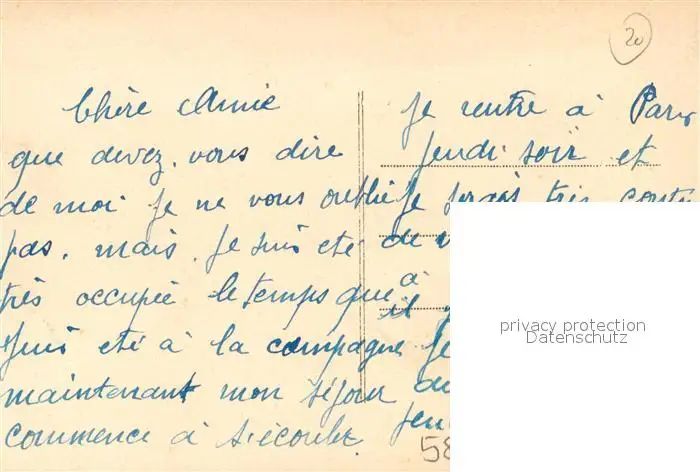 20
Chère Amie
que devez-vous dire
de moi je ne vous oublie
pas, mais je suis été
très occupée le temps que
suis été à la campagne
maintenant mon séjour
commence à s'écouler.
Je rentre à Paris
jeudi soir et
je serais très
de
à
il
Je
58
privacy protection
Datenschutz